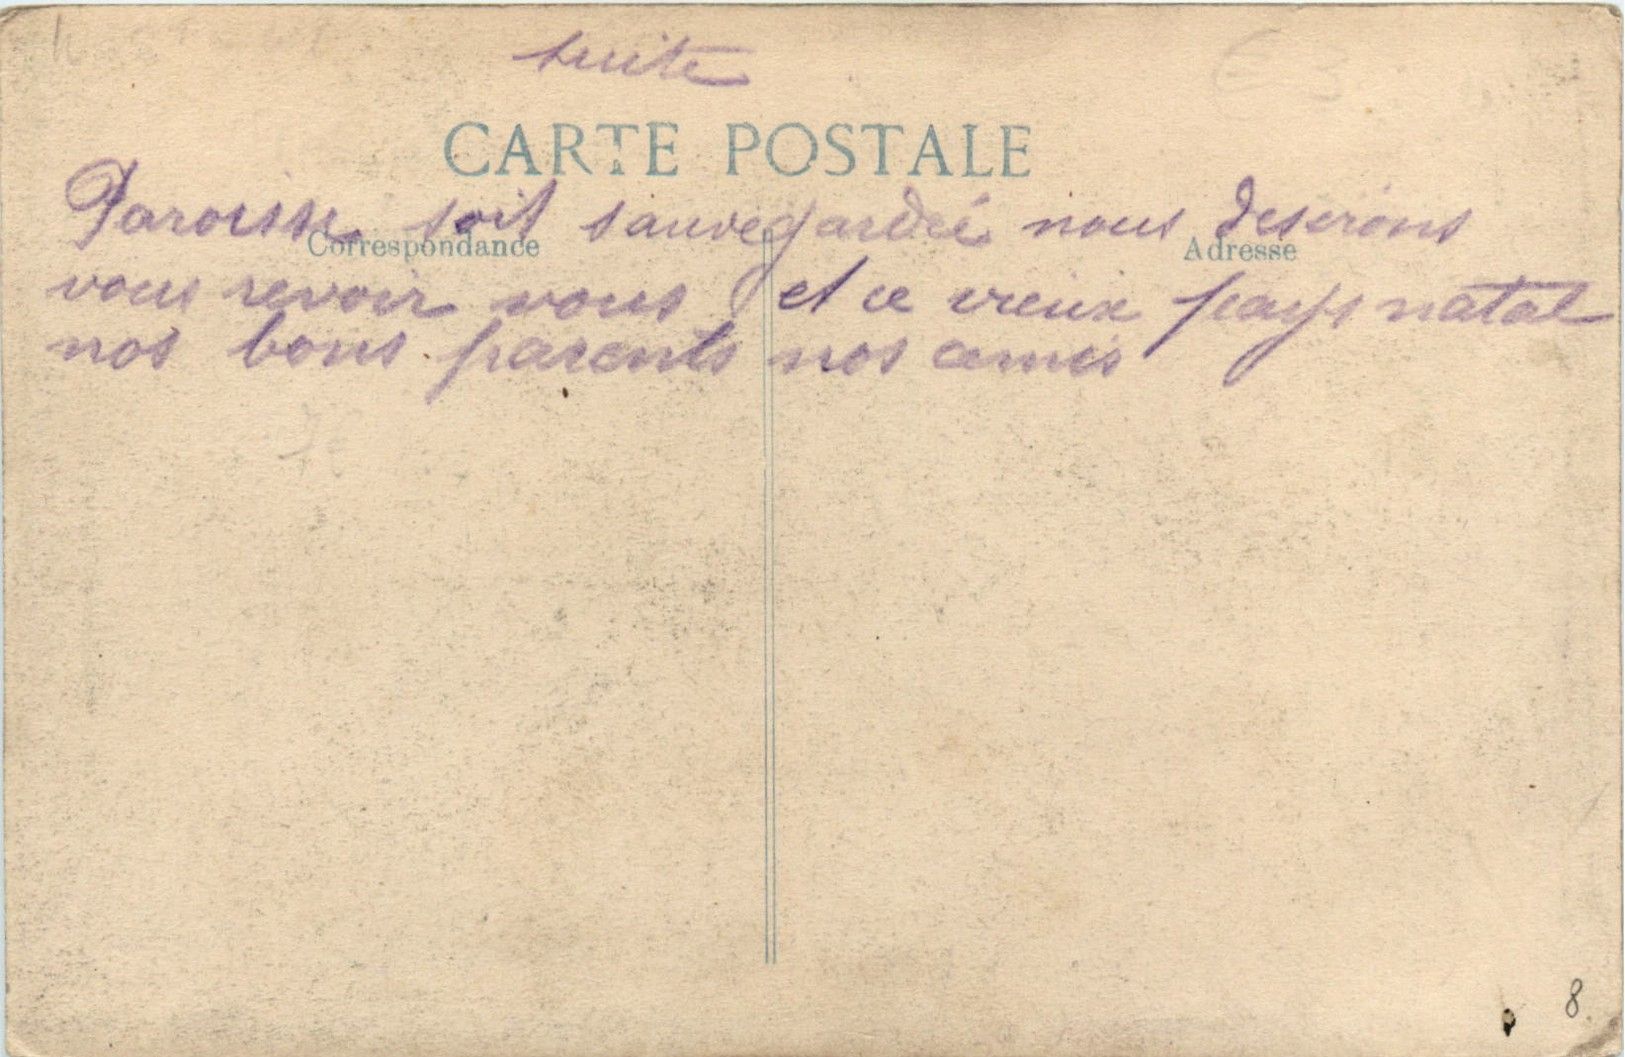 suite
CARTE POSTALE
Paroisse soit sauvegardée nous deserons
Correspondance
Adresse
vous revoir vous et ce vieux pays natal
nos bons parents nos amis
8